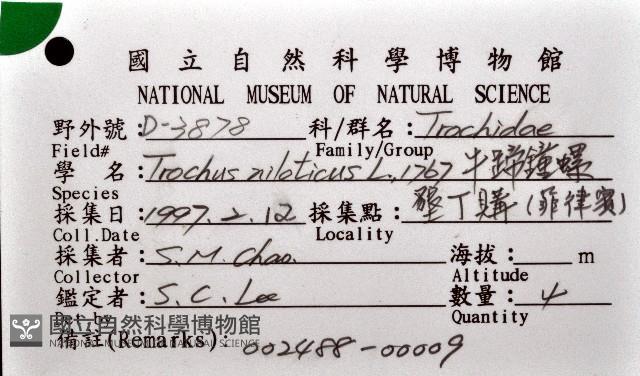 國立自然科學博物館
NATIONAL MUSEUM OF NATURAL SCIENCE
野外號: D-3878 科/群名: Trochidae
Field# Family/Group
學 名: Trochus niloticus L., 1767 牛蹄鐘螺
Species
採集日: 1997.2.12 採集點: 墾丁購(菲律賓)
Coll.Date Locality
採集者: S.M. Chao. 海拔: m
Collector Altitude
鑑定者: S.C. Lee 數量: 4
Det.by Quantity
國立自然科學博物館
NATIONAL MUSEUM OF NATURAL SCIENCE
備註(Remarks): 002488-00009